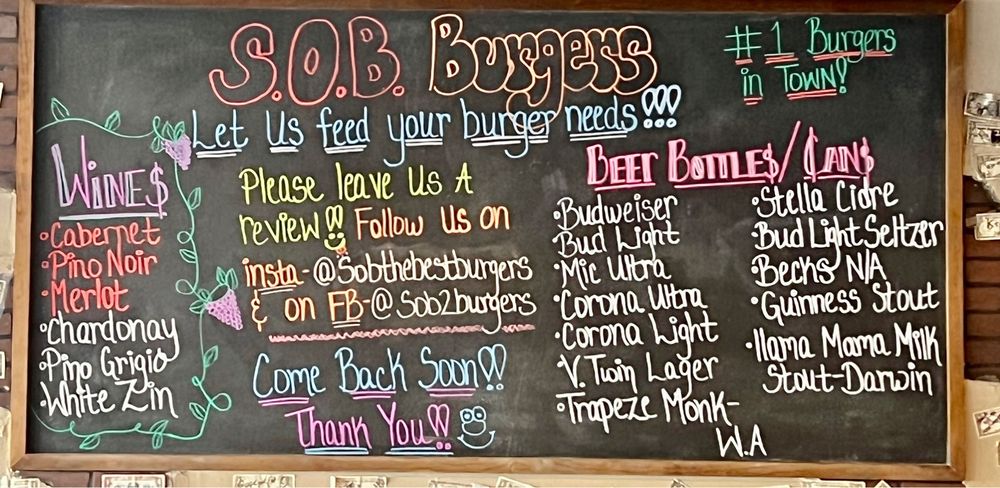 S.O.B. Burgers
#1 Burgers
in TOWN!
Let Us feed your burger needs!!!
WINE$
•Cabernet
•Pino Noir
•Merlot
•Chardonay
•Pino Grigio
•White Zin
Please leave Us A
review!! Follow Us on
insta-@Sobthebestburgers
& on FB-@Sob2burgers
Come Back Soon!!
Thank You!!
BEER BOTTLE$/CAN$
•Budweiser
•Bud Light
•Mic Ultra
•Corona Ultra
•Corona Light
•V. Twin Lager
•Trapeze Monk-
W.A
•Stella Cidre
•Bud Light Seltzer
•Becks N/A
•Guinness Stout
•llama Mama Milk
Stout-Darwin